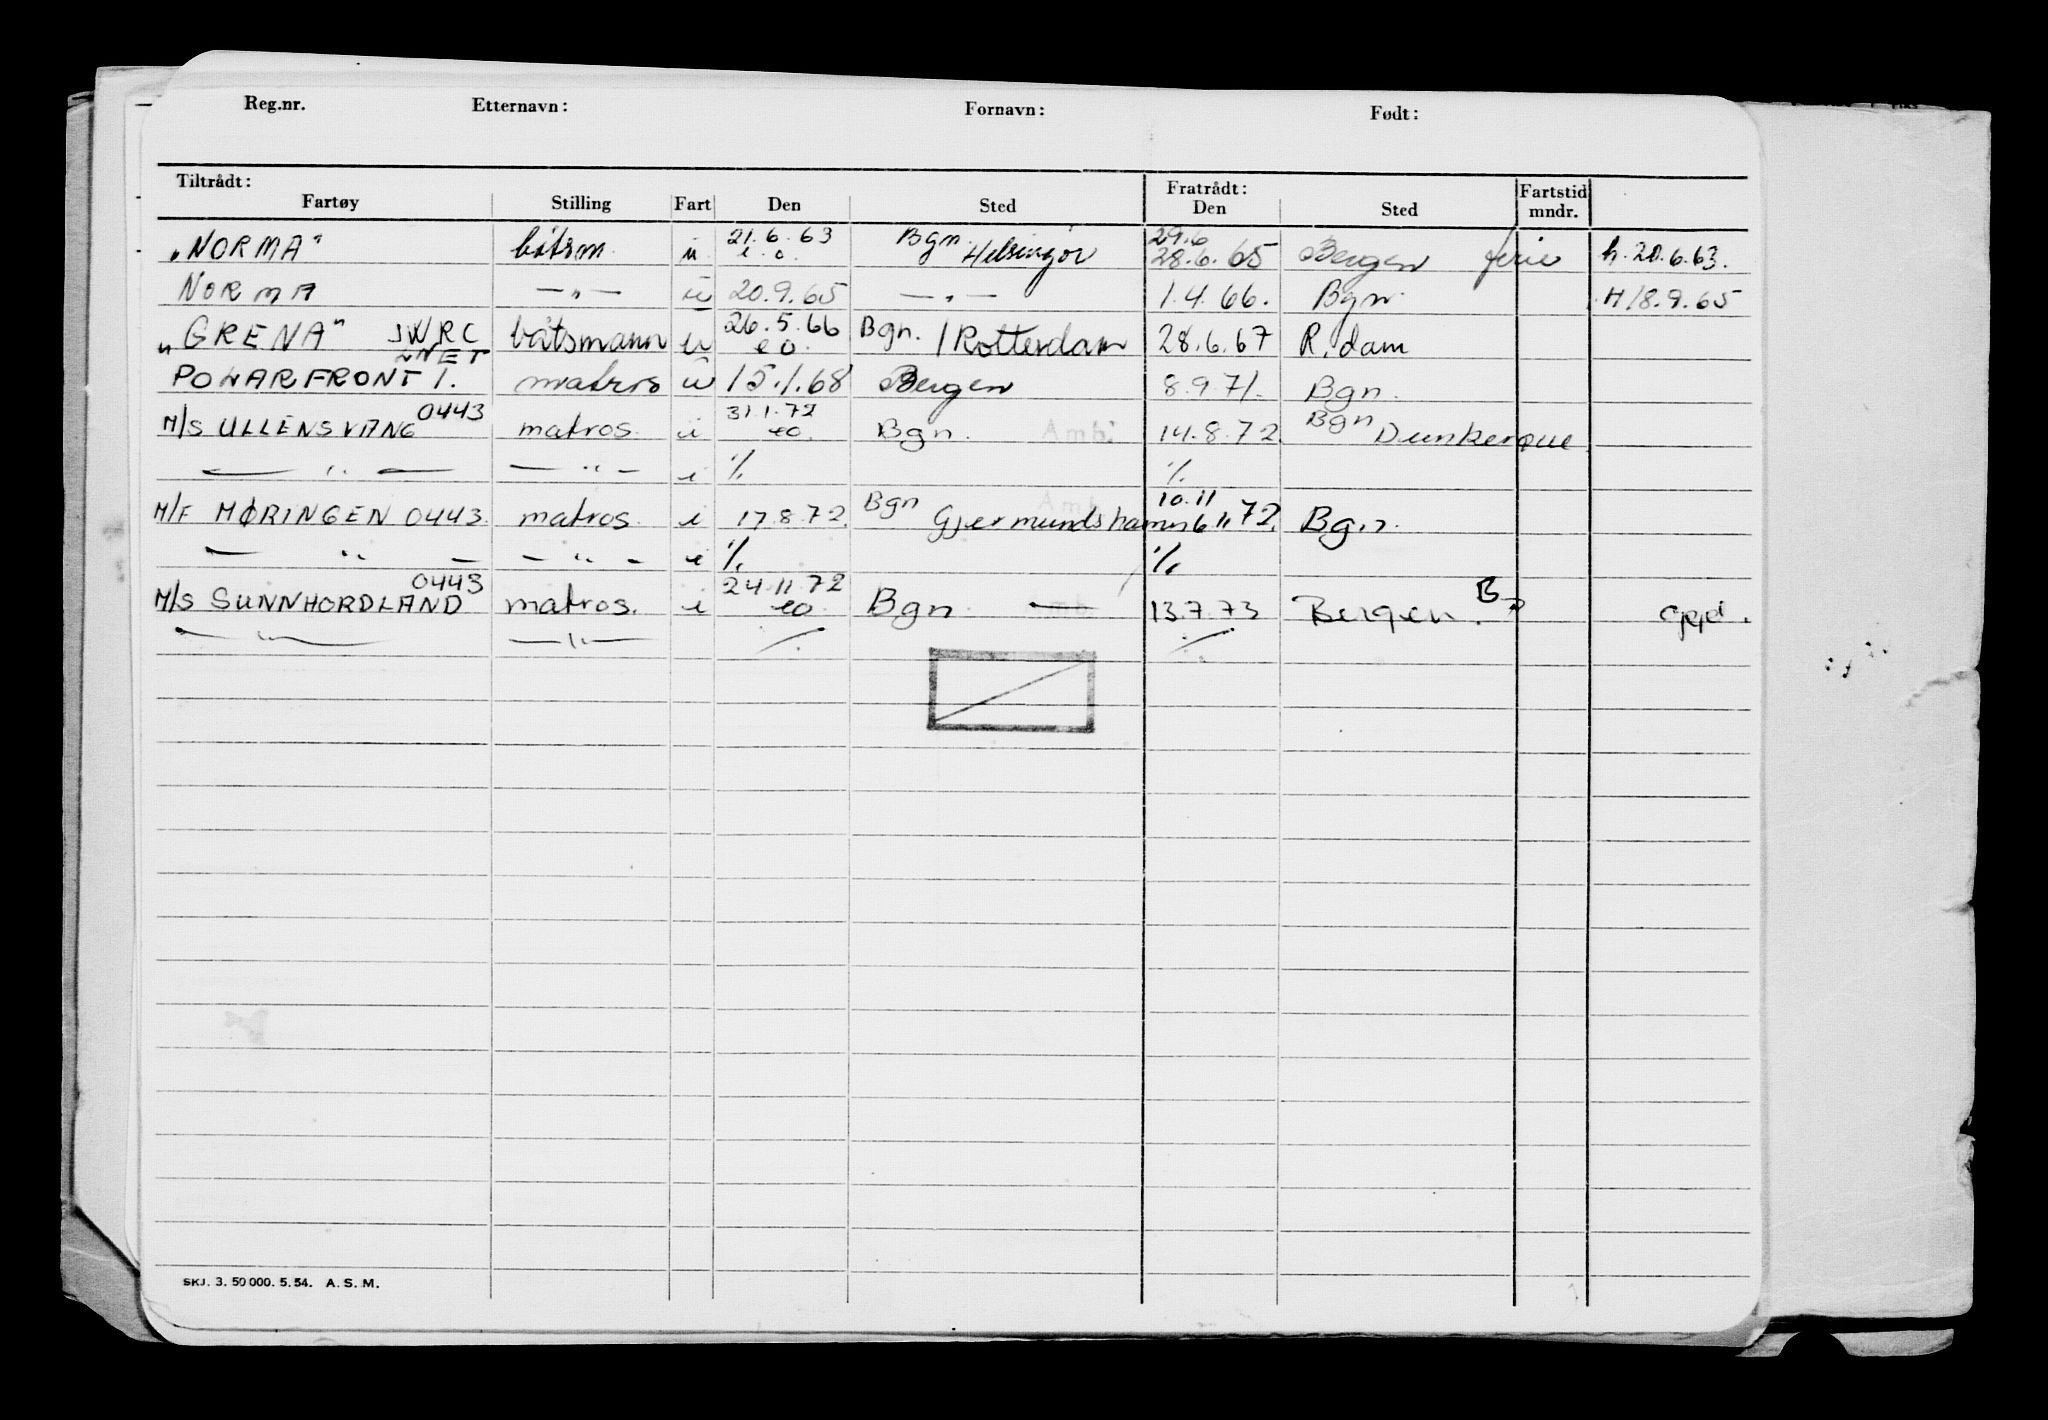 Reg.nr. Etternavn: Fornavn: Født:
Tiltrådt: Fratrådt:
Fartøy Stilling Fart Den Sted Den Sted Fartstid mndr.
"NORMA" båtsm. u 21.6.63 e.o. Bgn. Helsingør 29.6 28.6.65 Bergen ferie h. 20.6.63.
NORMA —"— u 20.9.65 —"— 1.4.66. Bgn. H 18.9.65
"GRENA" JWRC båtsmann u 26.5.66 eo Bgn. / Rotterdam 28.6.67 R.dam
POLARFRONT I. LNET matros u 15.1.68 Bergen 8.9.71. Bgn.
M/S ULLENSVANG 0443 matros i 31.1.72 eo. Bgn. Amb. 14.8.72. Bgn Dunkerque
— " — — " — i %. %.
M/F MØRINGEN 0443 matros i 17.8.72. Bgn Gjermundshamn Amb. 10.11 6 11 72. Bgn.
— " — — " — i %. %.
M/S SUNNHORDLAND 0443 matros. i 24.11.72 eo. Bgn. — Amb. 13.7.73 Bergen. B oppl.
— " — — " — %. %.
SKJ. 3. 50 000. 5. 54. A. S. M.